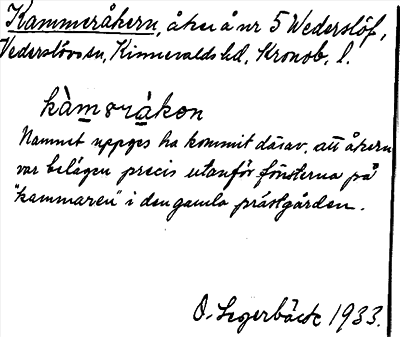 Kammeråkern, åker å nr 5 Wederslöf,
Vederslövs sn, Kinnevalds hd, Kronob. l.
kàmərákən
Namnet uppges ha kommit därav, att åkern
var belägen precis utanför fönsterna på
"kammaren" i den gamla prästgården.
O. Segerbäck 1933.